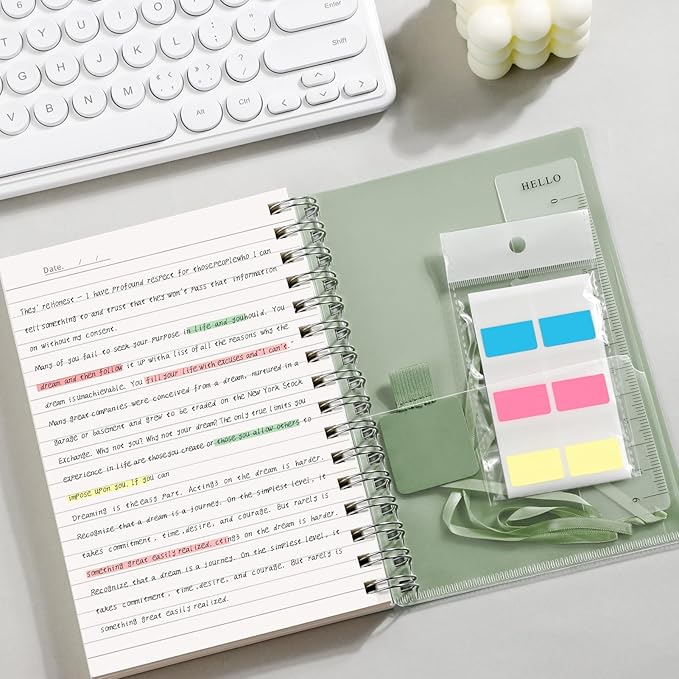 Enter
Shift
Alt
Ctrl
HELLO
0
Date. / /
They' reHonest - I have profound respect for thosepeoplewho I can
tell something to and trust that they won't pass that information
on without my consent.
Many of you fail to seek your purpose in life and youhould. You
dream and then follow it up witha list of all the reasons why the
dream isunachievable. You fill your life with excuses and "I can't".
Many great companies were conceived from a dream, nurtured in a
garage or basement and grew to be traded on the New York Stock
Exchange. Why not you? Why not your dream? The only true limits you
experience in life are thoseyou create or those you allow others to
impose upon you. If you can
Dreaming is theeasy part. Actings on the dream is harder.
Recognize that a dream is a journey. On the simplest level, it
takes commitment, time,desire, and courage. But rarely is
something great easily realized. ctings on the dream is harder.
Recognize that a dream is a journey. On the simplest level, it
takes commitment, time,desire, and courage. But rarely is
something great easily realized.